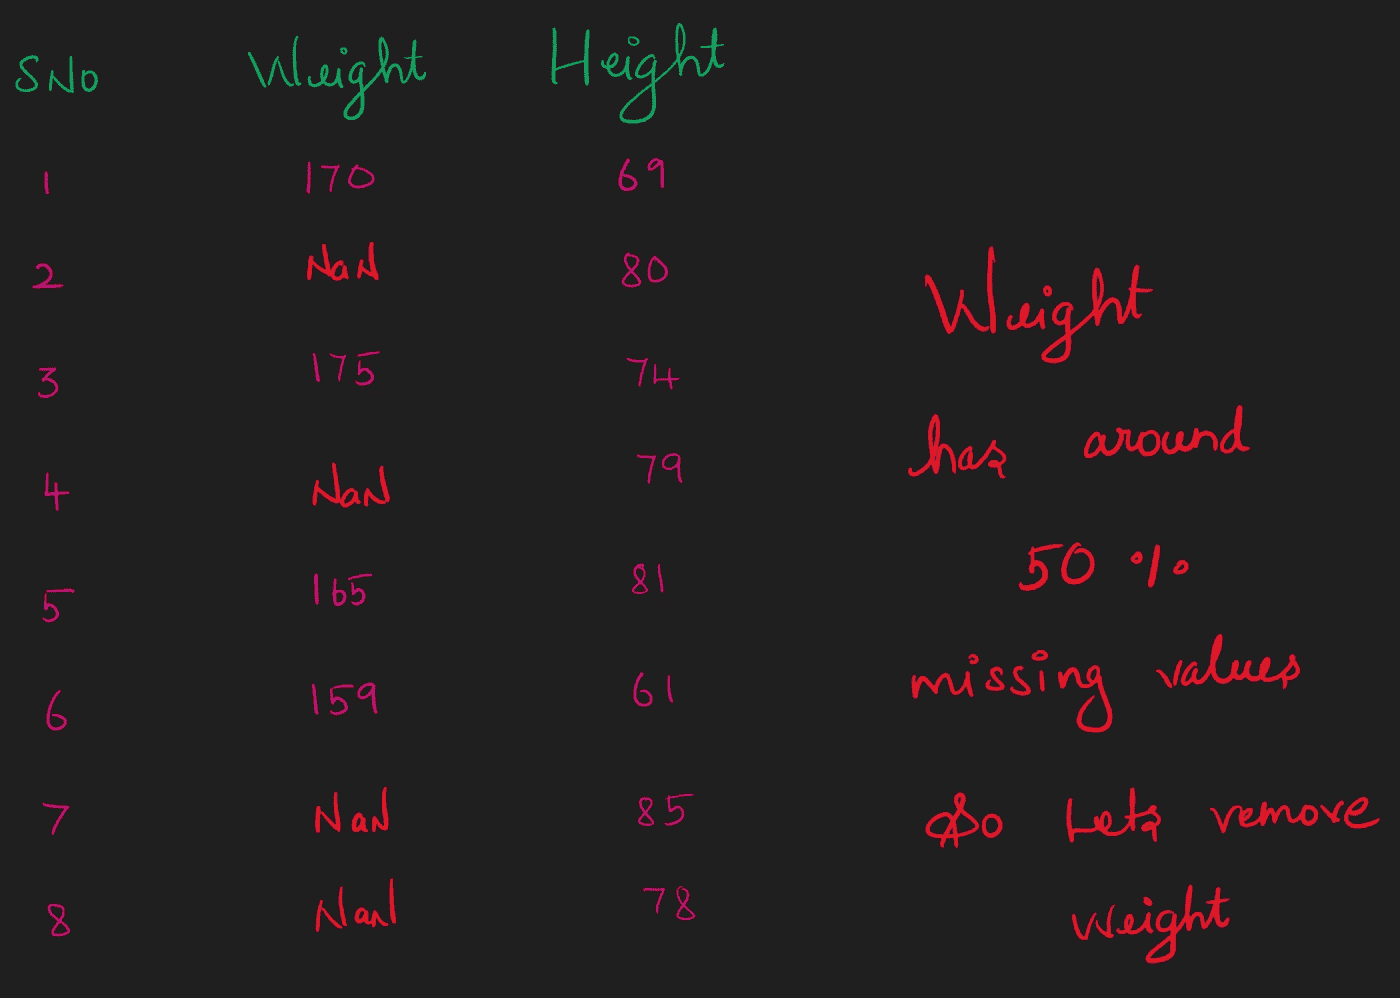 SNo Weight Height
1 170 69
2 NaN 80
3 175 74
4 NaN 79
5 165 81
6 159 61
7 NaN 85
8 NaN 78
Weight
has around
50 %
missing values
So Lets remove
Weight